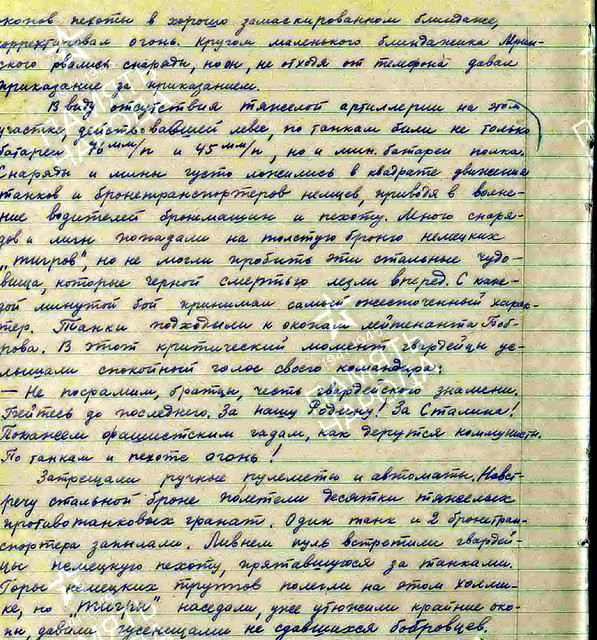 окопов пехоты в хорошо замаскированном блиндаже,
корректировал огонь. Кругом маленького блиндажика Мрин-
ского рвались снаряды, но он, не отходя от телефона давал
приказание за приказанием.
В виду отсутствия тяжелой артиллерии на этом
участке, действовавшей левее, по танкам били не только
батареи 76 мм/п и 45 мм/п, но и мин. батареи полка.
Снаряды и мины густо ложились в квадрате движение
танков и бронетранспортеров немцев, приводя в волне-
ние водителей бронемашин и пехоту. Много снаря-
дов и мин попадали на толстую броню немецких
„тигров", но не могли пробить эти стальные чудо-
вища, которые черной смертью лезли вперед. С каж-
дой минутой бой принимал самый ожесточенный харак-
тер. Танки подходили к окопам лейтенанта Боб-
рова. В этот критический момент гвардейцы ус-
лышали спокойный голос своего командира:
— Не посрамим, братцы, честь гвардейского знамени.
Бейтесь до последнего. За нашу Родину! За Сталина!
Покажем фашистским гадам, как дерутся коммунисты.
По танкам и пехоте огонь!
Затрещали ручные пулеметы и автоматы. Навст-
речу стальной броне полетели десятки тяжелых
противотанковых гранат. Один танк и 2 бронетран-
спортера запылали. Ливнем пуль встретили гвардей-
цы немецкую пехоту, прятавшуюся за танками.
Горы немецких трупов полегли на этом холми-
ке, но „тигры" наседали, уже утюжили крайние око-
пы, давили гусеницами не сдавшихся бобровцев.
ПАМЯТЬ
НАРОДА
ПАМЯТЬ
НАРОДА